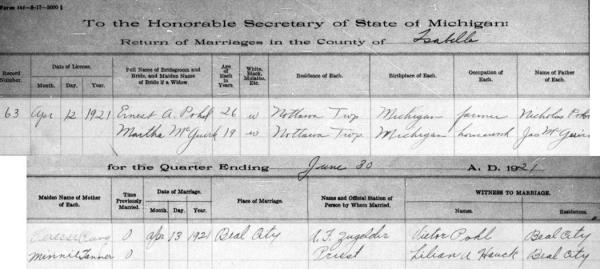 Form 146-8-17-2000
To the Honorable Secretary of State of Michigan:
Return of Marriages in the County of Isabella
Record Number.
Date of License.
Month. Day. Year.
Full Name of Bridegroom and Bride, and Maiden Name of Bride if a Widow
Age of Each in Years
White, Black, Mulatto, Etc.
Residence of Each.
Birthplace of Each.
Occupation of Each.
Name of Father of Each.
63 Apr 12 1921 Ernest A. Pohl 26 w Nottawa Twp Michigan farmer Nicholas Pohl
Martha McGuirk 19 w Nottawa Twp Michigan housework Jas McGuirk
for the Quarter Ending June 30 A. D. 1921
Maiden Name of Mother of Each.
Time Previously Married.
Date of Marriage.
Month. Day. Year.
Place of Marriage.
Name and Official Station of Person by Whom Married.
WITNESS TO MARRIAGE.
Names. Residences.
0 Apr 13 1921 Beal City A. F. Zugelder Victor Pohl Beal City
Minnie Tanner 0 Priest Lilian A Hauck Beal City